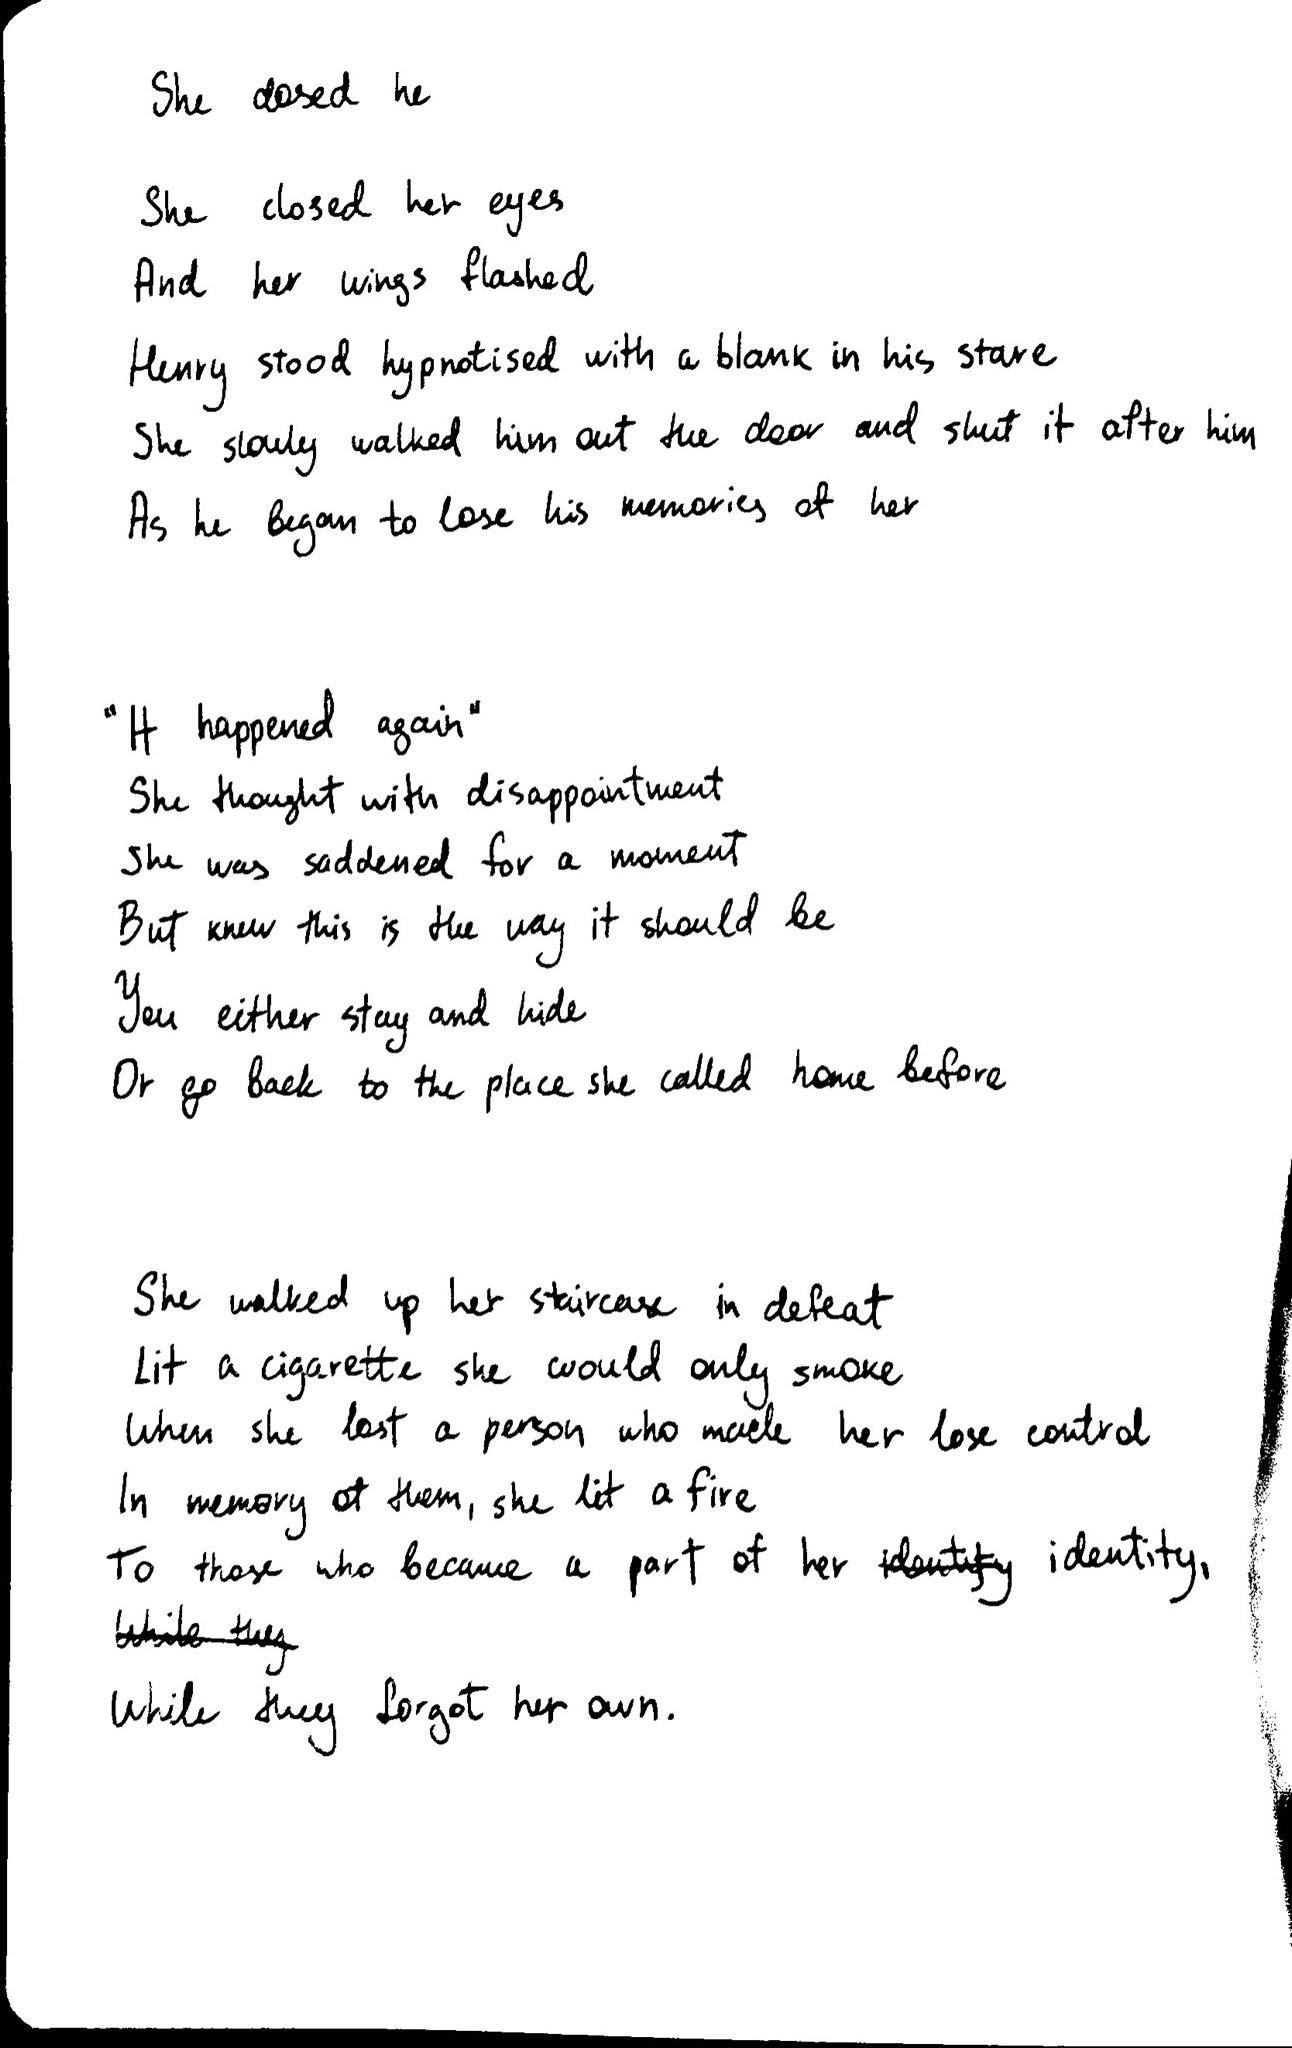 She closed he
She closed her eyes
And her wings flashed
Henry stood hypnotised with a blank in his stare
She slowly walked him out the door and shut it after him
As he began to lose his memories of her
"It happened again"
She thought with disappointment
She was saddened for a moment
But knew this is the way it should be
You either stay and hide
Or go back to the place she called home before
She walked up her staircase in defeat
Lit a cigarette she would only smoke
When she lost a person who made her lose control
In memory of them, she lit a fire
To those who became a part of her identity identity,
While they
While they forgot her own.